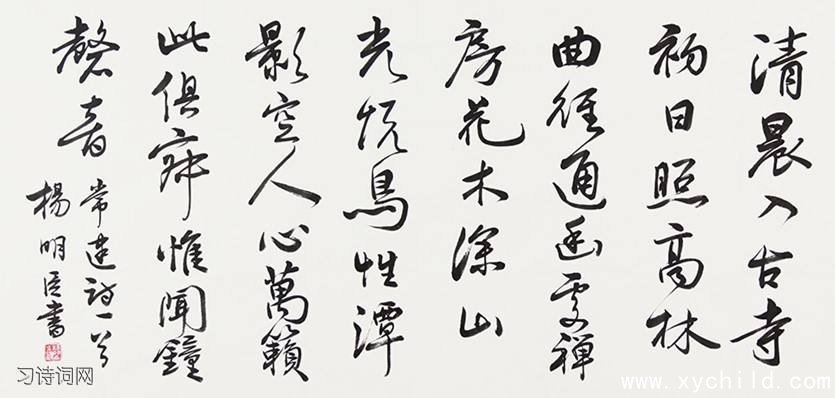 清晨入古寺
初日照高林
曲徑通幽處禪
房花木深山
光悦鳥性潭
影空人心萬籟
此俱寂惟聞鐘
磬音
常建詩一首
楊明臣書
习诗词网
www.xychild.com